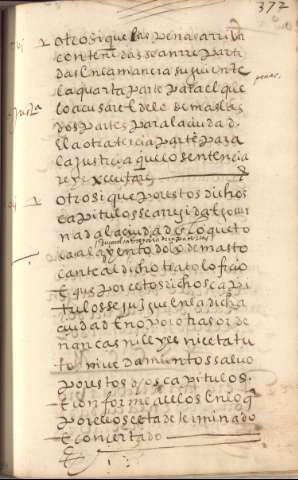 372
otrosi que las penas arriba
contenidas se an rrepartidas
das en la manera siguiente
la quarta parte para el que
lo acusare e de lo demas las
dos partes para la ciudad
e la otra tercia parte para
la justicia que lo sentencia
re y executare
penas
otrosi que por estos dichos
capitulos se a rregida e gover
nada la ciudad en lo que to
ca a la y en todo lo demas to
cante al dicho trato e oficio
e que por estos dichos capi
tulos se juzgue en la dicha
ciudad e no por otras orde
nancas ni leyes ni estatu
tos ni vedamientos salvo
por estos dichos capitulos
e conforme a ellos en lo q
por ellos esta determinado
e concertado